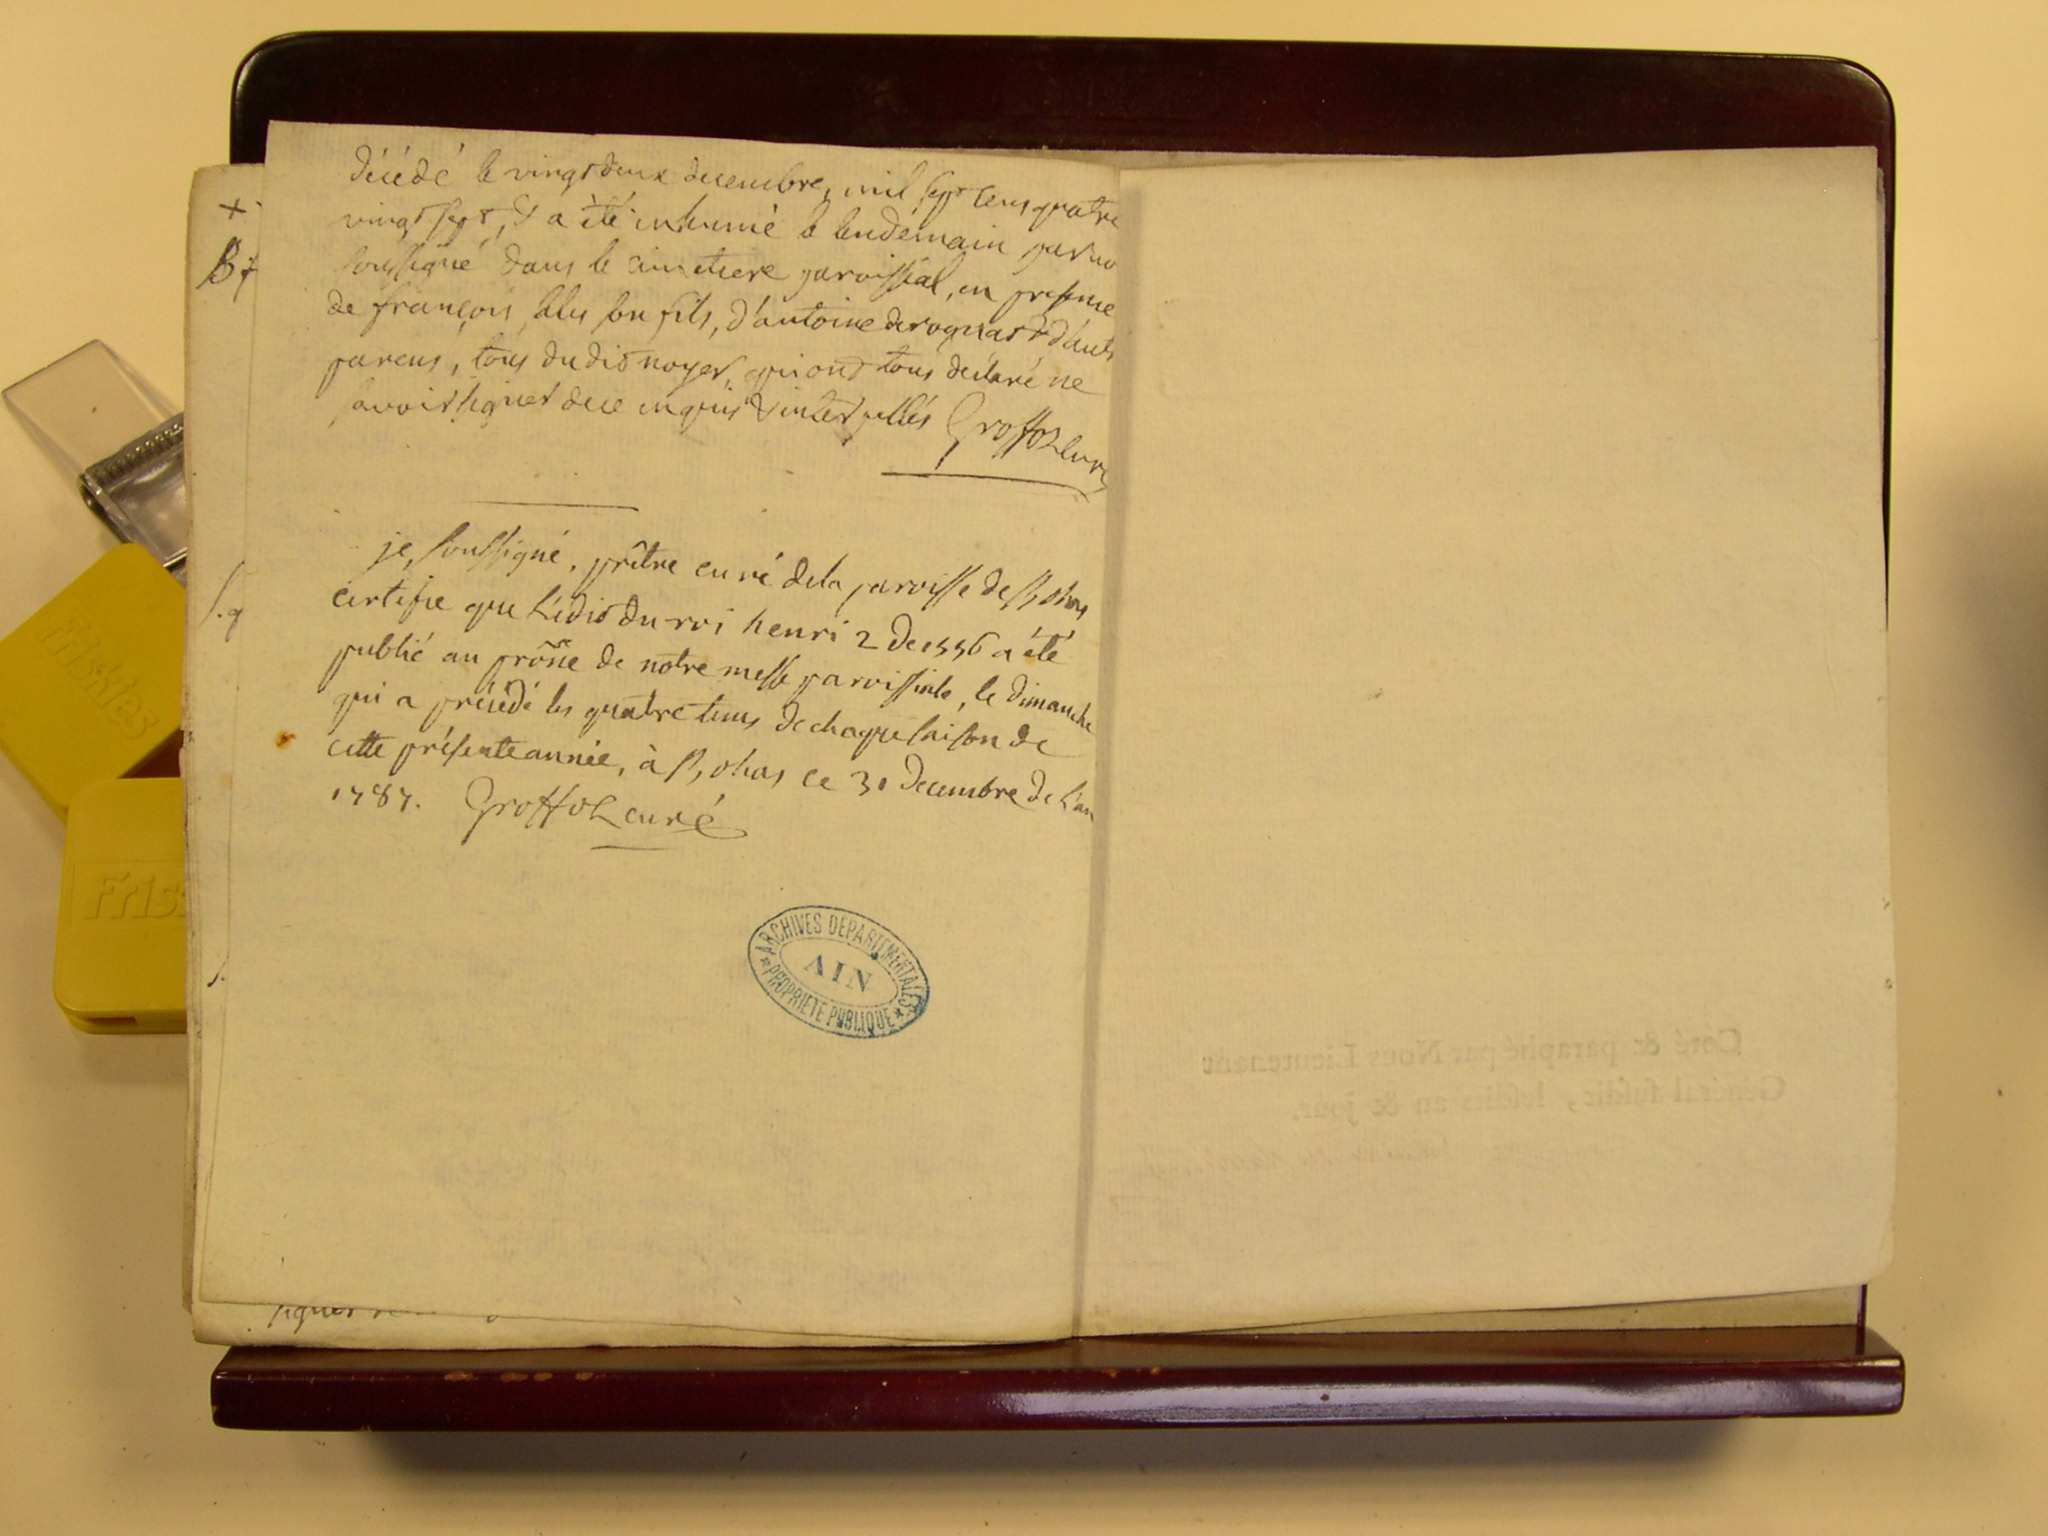 décédé le vingt deux decembre, mil sept cens quatre
vingt sept, & a été inhumé le lendemain par no
soussigné dans le cimetiere paroissial, en presence
de françois, son fils, d'antoine d'aut
parens, tous dudit noyer, qui ont tous déclaré ne
savoir signer de ce enquis & interpellés Groffoz curé
je, soussigné, prêtre curé de la paroisse de Bohas
certifie que L'édit du roi henri 2 de 1556 a été
publié au prône de notre messe paroissiale, le dimanche
qui a précédé les quatre tems de chaque saison de
cette présente année, à Bohas ce 31 decembre de L'an
1787. Groffoz curé
ARCHIVES DEPARTEMENTALES
AIN
PROPRIETE PUBLIQUE
Coté & paraphé par Nous Lieutenant
Général susdit, lesdits an & jour.
+
B
S. q
signer
Friskies
Fris